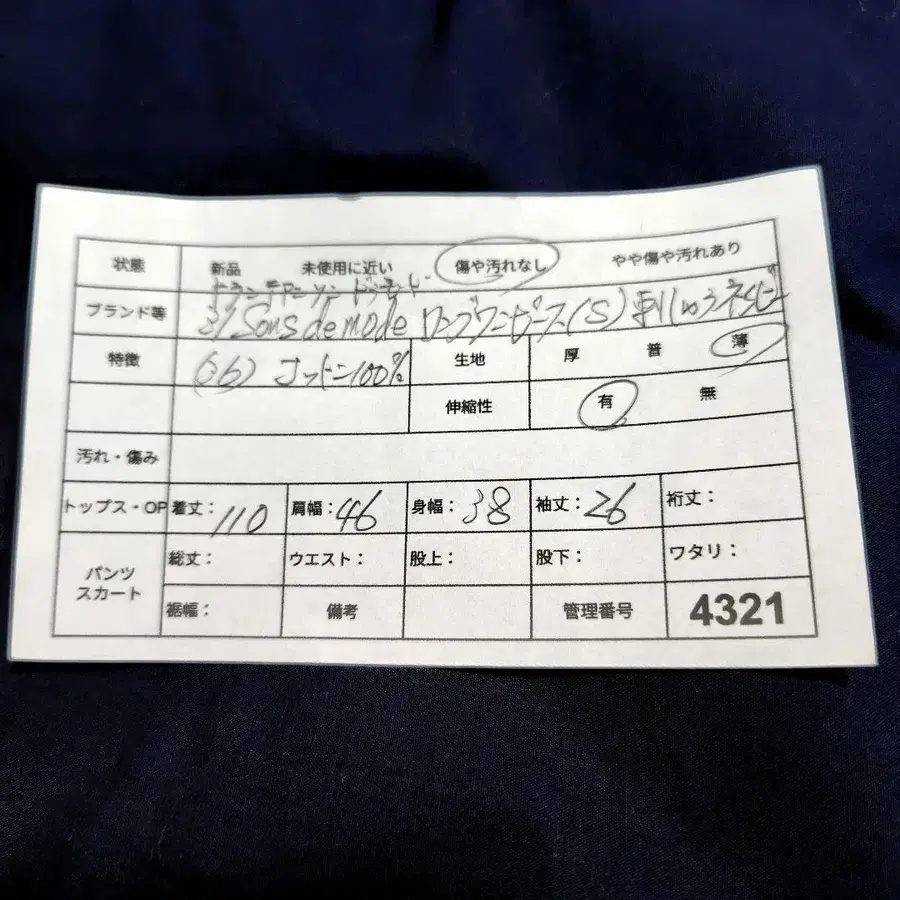 状態 新品 未使用に近い 傷や汚れなし やや傷や汚れあり
トランテアン ソン ドゥ モード
ブランド等 31 Sons de mode ロングワンピース(S) 刺しゅう ネイビー
特徴 (36) コットン100% 生地 厚 普 薄
伸縮性 有 無
汚れ・傷み
トップス・OP 着丈: 110 肩幅: 46 身幅: 38 袖丈: 26 裄丈:
パンツ スカート
総丈: ウエスト: 股上: 股下: ワタリ:
裾幅: 備考 管理番号 4321